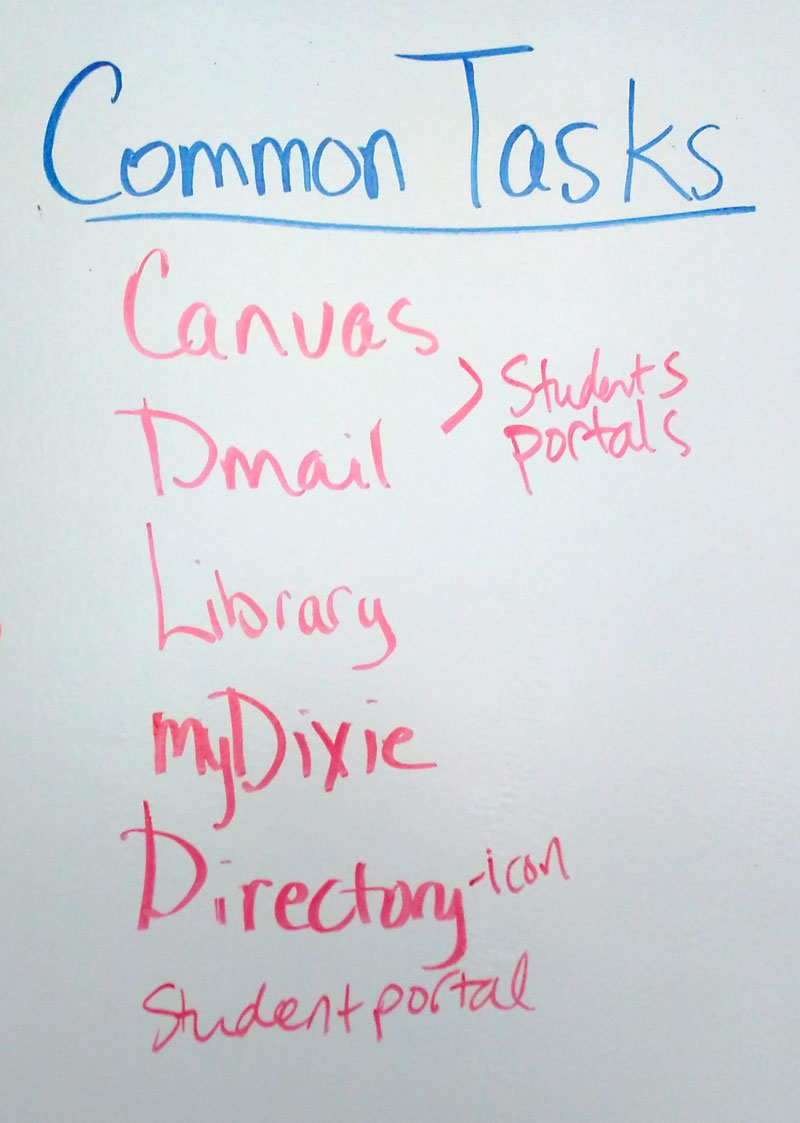 Common Tasks
Canvas
> Students
portals
Dmail
Library
myDixie
Directory -icon
Student portal